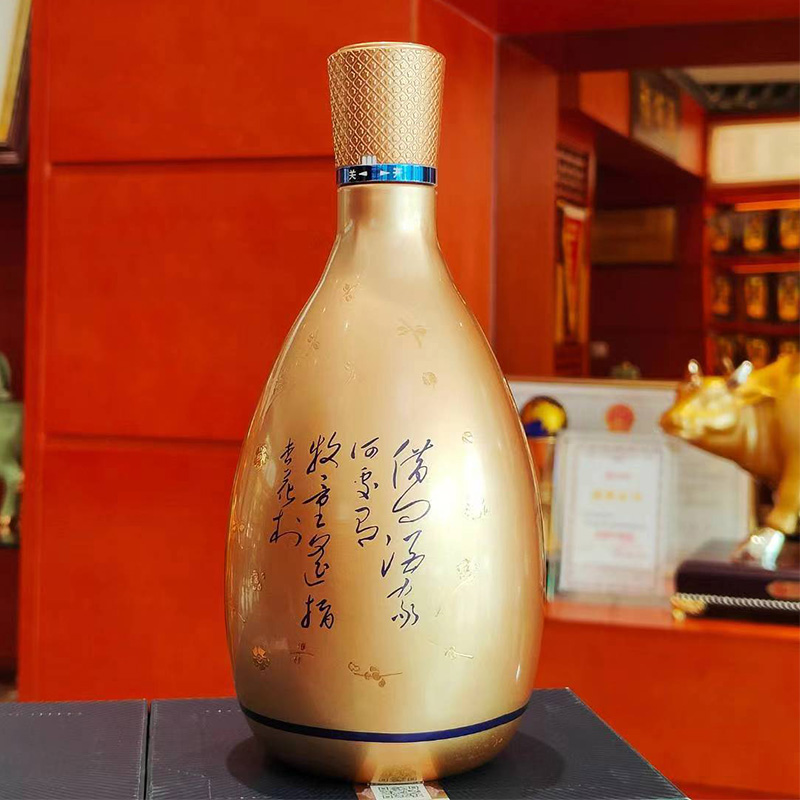 关 ◄ ► 开
借问酒家
何处有
牧童遥指
杏花村